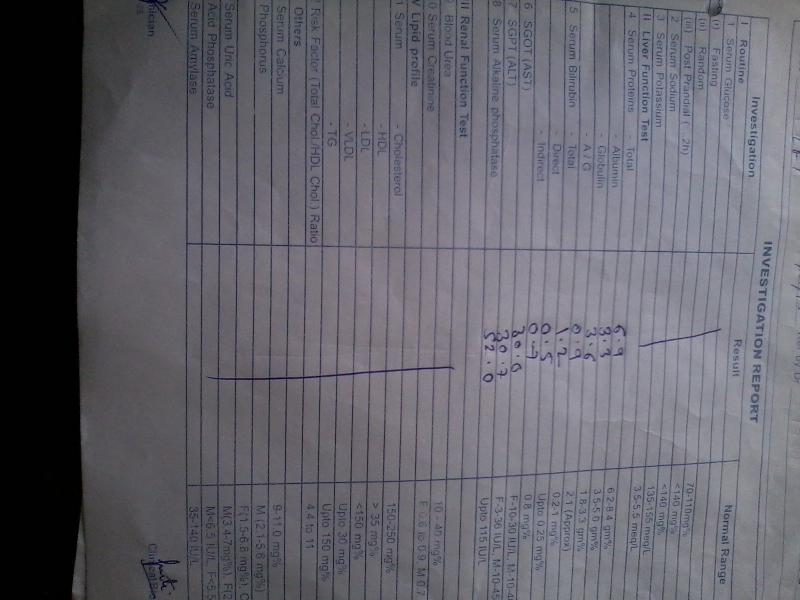 INVESTIGATION REPORT
Investigation Result Normal Range
I Routine
1 Serum Glucose
(i) Fasting 70-110mg%
(ii) Random <140 mg%
(iii) Post Prandial ( 2h) <140 mg%
2 Serum Sodium 135-155 meq/L
3 Serum Potassium 3.5-5.5 meq/L
II Liver Function Test
4 Serum Proteins - Total 6.9 6.2-8.4 gm%
- Albumin 3.3 3.5-5.0 gm%
- Globulin 3.6 1.8-3.3 gm%
- A / G 0.9 2:1 (Approx)
5 Serum Bilirubin - Total 1.2 0.2-1 mg%
- Direct 0.5 Upto 0.25 mg%
- Indirect 0.7 0.8 mg%
6 SGOT (AST) 30.6 F-10-30 IU/L, M-10-4
7 SGPT (ALT) 30.7 F-3-36 IU/L, M-10-45
8 Serum Alkaline phosphatase 52.0 Upto 115 IU/L
III Renal Function Test
Blood Urea 10 - 40 mg%
0 Serum Creatinine
V Lipid profile
1 Serum - Cholesterol 150-250 mg%
- HDL > 35 mg%
- LDL <150 mg%
- VLDL Upto 30 mg%
- TG Upto 150 mg%
Risk Factor (Total Chol./HDL Chol.) Ratio 4.4 to 11
Others
Serum Calcium 9-11.0 mg%
Phosphorus M (2.1-5.6 mg%)
F(1.5-6.8 mg%), C
Serum Uric Acid M(3.4-7mg%), F(2
Acid Phosphatase M<6.5 IU/L, F<5.
Serum Amylase 35-140 IU/L
nician